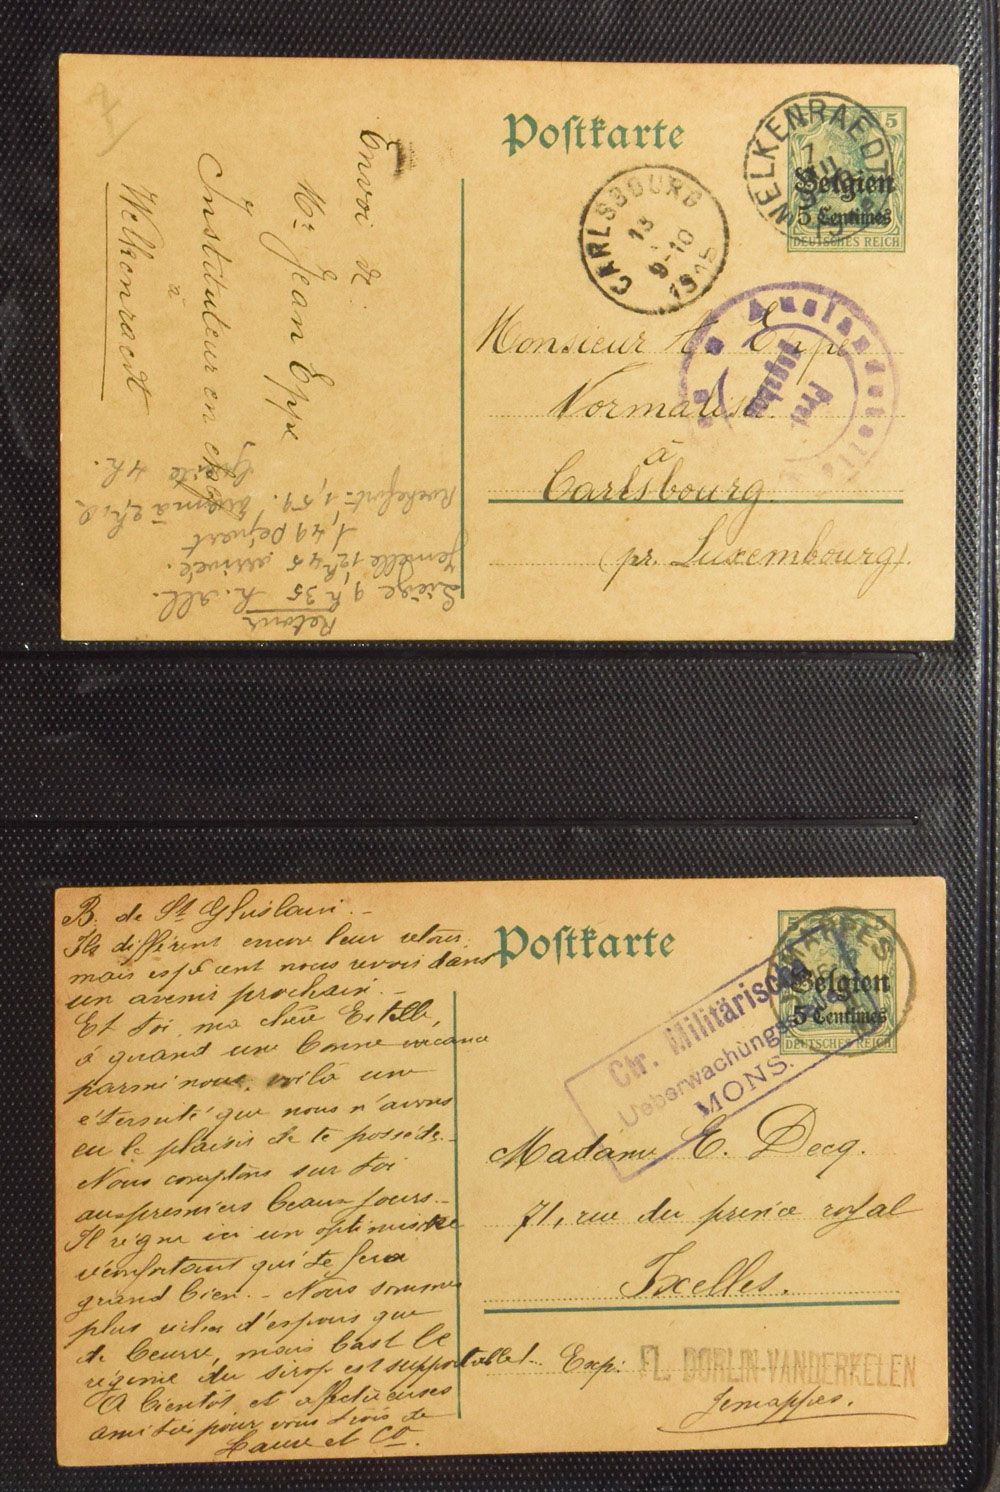 Postkarte
5
Belgien
5 Centimes
DEUTSCHES REICH
WELKENRAEDT
7
CARLSBOURG
13
9-10
1915
Auslandstelle
Frei
gegeben
Envoi de
Mr Jean Eppe
Instituteur en chef
à
Welkenraedt
Monsieur Eppe
Normaliste
à
Carlsbourg
(pr. Luxembourg).
Retour
Liége 9h35 h. all.
Jemelle 12h45 arrivée.
1,49 Départ
Rochefort = 1,59.
4 h.
Postkarte
5 5
Belgien
5 Centimes
DEUTSCHES REICH
JEMAPPES
Ctr. Militärische
Ueberwachungsstelle
MONS.
B. de St Ghislain. -
Ils diffèrent encore leur retour,
mais espèrent nous revoir dans
un avenir prochain. -
Et toi, ma chère Estelle,
à quand une bonne vacance
parmi nous, voilà une
éternité que nous n'avons
eu le plaisir de te posséder. -
Nous comptons sur toi
aux premiers beaux jours. -
Il règne ici un optimisme
réconfortant qui te fera
grand bien. - Nous sommes
plus riches d'espoirs que
de beurre, mais bast le
régime du sirop est supportable!..
A bientôt et affectueuses
amitiés pour vous trois de
Laure et Co.
Madame E. Decq.
71, rue du prince royal
Ixelles.
Exp: FL. DORLIN-VANDERKELEN
Jemappes.